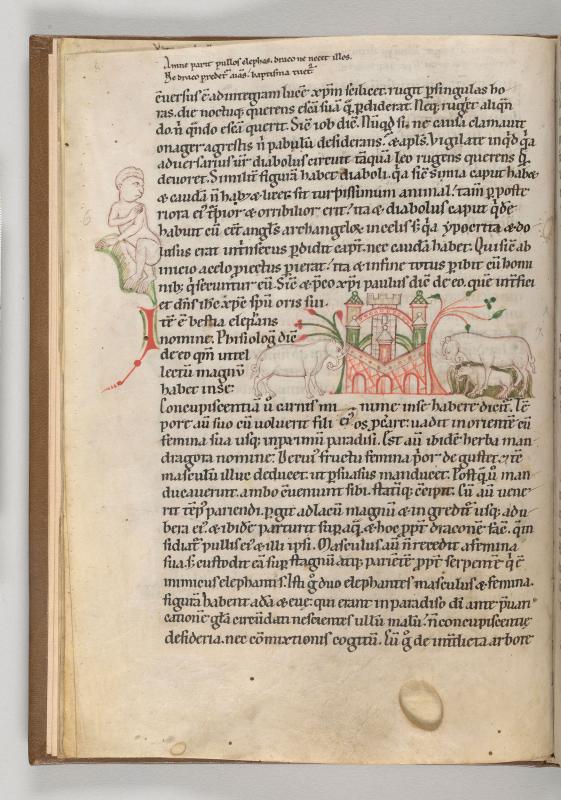 Amne parit pullos elephas. draco ne necet illos.
Ne draco predet' aīas. baptisma tuet'.
ēuersus ē ad integram lucē xp̄m scilicet. rugit p singulas ho
ras. die noctuq; querens escā suā q̄ pdiderat. Neq; rugiet aliqn̄
do. n̄ qn̄do escā querit. Sic̄ iob dic̄. Nūqd si ne causa clamauit
onager agrestis n̄ pabulū desiderans. & apl̄s. Vigilate inqd q̄a
aduersarius ur̄ diabolus circuit tāquā leo rugens querens q̄
deuoret. Similit' figurā habet diaboli. q̄a sic̄ simia caput habet
& caudā n̄ habet. & licet sit turpissimum animal. tam̄ poste
riora ei' & horribiliora. ita & diabolus caput qde
habuit cū eēt angl's archangelox in celis. s; q̄a ypocrita & do
losus erat intrinsecus pdidit capt. nec caudā habet. Qui sic̄ ab
inicio a celo piectus pierat. ita & in fine totus pibit cū homi
nib; q̄ seruntur eū. Sic̄ & pco xp̄i paulus dic̄ de eo. quē int'fici
et dn̄s ih̄c xp̄c sp̄u oris sui.
Itē ē bestia elephans
nomine. Phisiolog' dic̄
de eo qm̄ intel
lectū magnū
habet in se.
Concupiscentiā ū carnis mi nime in se habere dicit'. Tē
pore aū suo cū uoluerit fili os pcare. uadit in orientē cū
femina sua usq; in primū paradisi. Est aū ibidē herba man
dragora nomine. De cui' fructu femina prior degustet. &
masculū illuc deducet. ut psuasus manducet. Postq̄ ū man
ducauerint. ambo cuenunt sibi. statiq; cēcipit. Cū aū uene
rit tēp' pariendi. pgit ad lacū magnū & ingredit' usq; ad u
bera ei'. & ibidē parturit sup aq̄. & hoc ppt' draconē fac̄. q̄ in
sidiat' pullis ei' & illi ipsi. Masculus aū n̄ recedit a femina
sua. s; custodit eā sup stagnū atq; parietē ppt' serpentē q̄ ē
inimicus elephantis. Isti g duo elephantes masculus & femina.
figurā habent adā & eue; qui erant in paradiso dī ante puari
cationē gl̄a circūdati nescientes ullū malū. n̄ concupiscentie
desideria. nec cōmixtionis cogitū. Cū g de int'dicta arbore